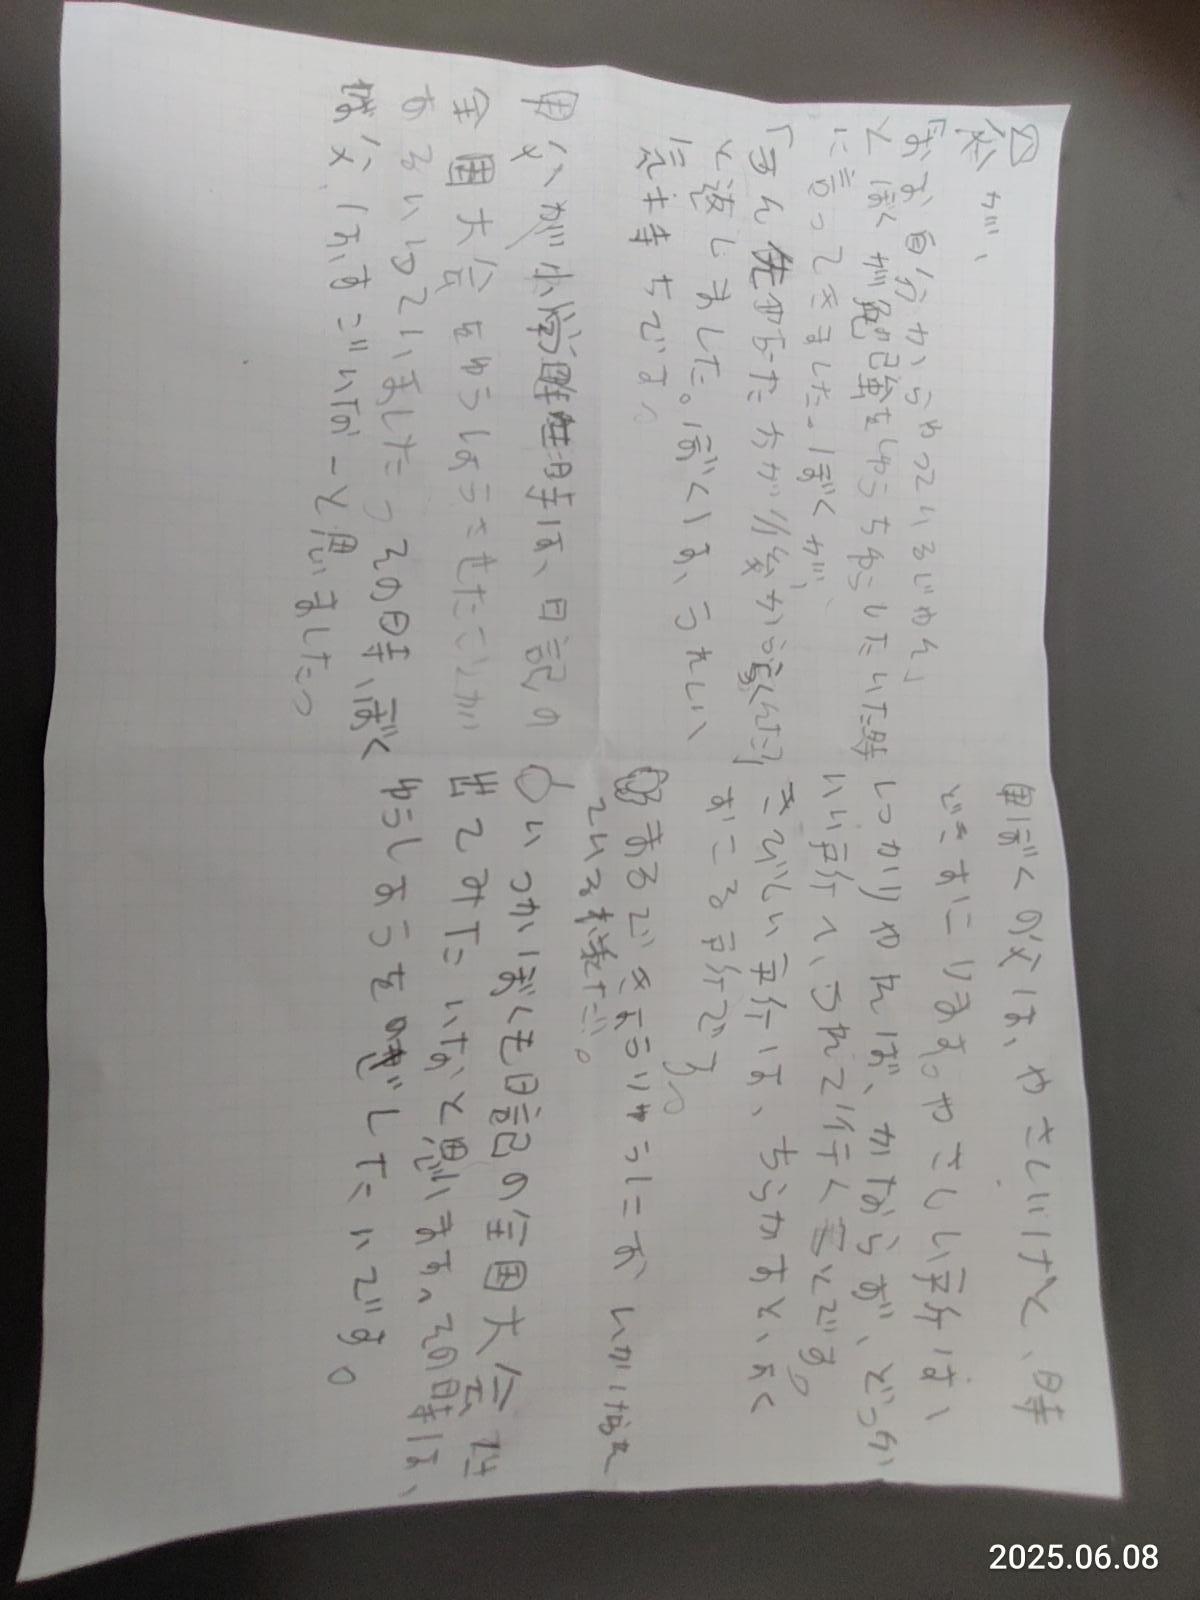 父が、
「お、自分からやっているじゃん」
とぼくが暗唱をしゅうちゅうしたいた時
に言ってきました。ぼくが、
「うん先やった方が後から楽んだ」
と返しました。ぼくは、うれしい
気持ちです。
父が小学生時は、日記の
全国大会をゆうしょうをしたことが
あるいっていました。その時、ぼく
は父、はすごいなーと思いました。
ぼくの父は、やさしいけど、時
どきおこります。やさしい所は、
しっかりやれば、かならず、どっか
いい所へ、つれて行くことです。
きびしい所は、ちらかすと、よく
おこる所です。
まるできょうりゅうにおいかけられ
ている様だ。
いつかぼくも日記の全国大会に
出てみたいなと思います。その時は、
ゆうしょうをめざしたいです。
2025.06.08